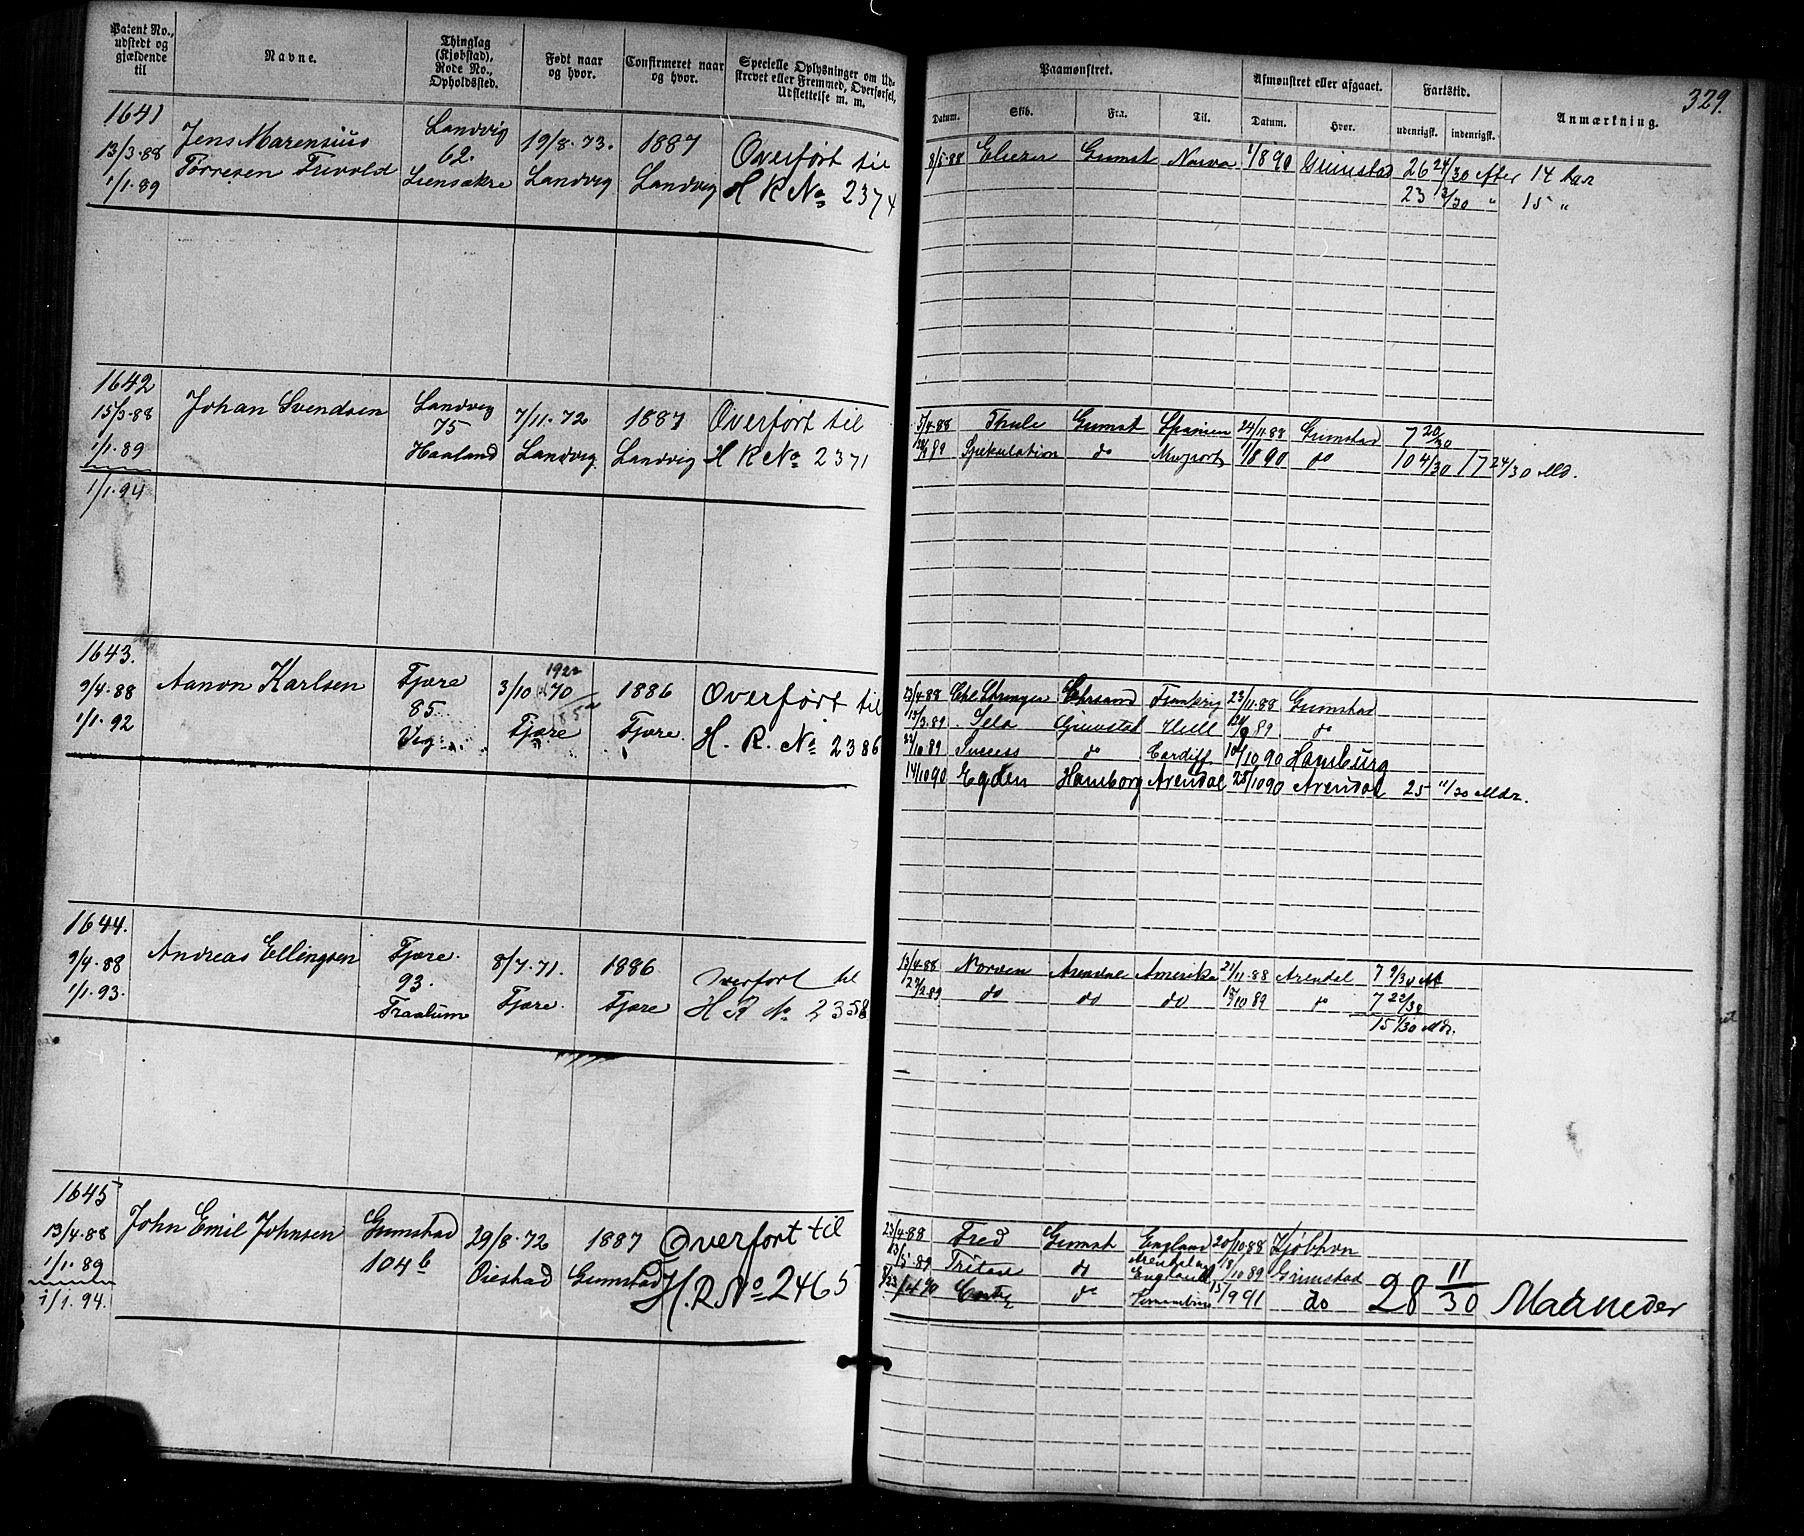 Patent No., udstedt og gjældende til
Navne.
Thinglag (Kjøbstad), Rode No., Opholdssted.
Født naar og hvor.
Confirmeret naar og hvor.
Specielle Oplysninger om Udskrevet eller Fremmed, Overførsel, Udslettelse m. m.
Paamønstret.
Afmønstret eller afgaaet.
Fartstid.
Anmærkning.
329.
Datum.
Skib.
Fra.
Til.
Datum.
Hvor.
udenrigsk.
indenrigsk.
1641
13/3·88
1/1·89
Jens Marensius
Torresen Trevold
Landvig
62.
Liensakre
19/8·73.
Landvig
1887
Landvig
Overført til
H R No 2374
8/5·88 Grimst Narva 1/8 90 Grimstad 26 24/30 efter 14 Aar
23 3/30 " 15 "
1642
15/3·88
1/1·89
1/1·94
Johan Svendsen
Landvig
75
Haaland
7/11·72
Landvig
1887
Landvig
Overført til
H R No 2371
5/4·88 Thule Grimst Spanien 24/11·88 Grimstad 7 20/30
89 Spekulation do 1/8 90 do 10 4/30 17 24/30 Md.
1643.
9/4·88
1/1·92
Aanon Karlsen
Fjære
85.
Vig
3/10 70
1922
Fjære
1886
Fjære.
Overført til
H. R. No 2386
23/4·88 Chrsand Frankrig 23/11·88 Grimstad
15/3·89 Grimstad 89 do
89 Success do Cardiff 10/10 90 Hamburg
14/10 90 Egden Hamborg Arendal 25/10 90 Arendal 25 11/30 Mdr.
1644.
9/4·88
1/1·93.
Andreas Ellingsen
Fjære.
93.
Fraalum
8/7·71.
Fjære.
1886
Fjære
Overført til
H R No 2358
13/4·88 Norden Arendal Amerika 21/11·88 Arendal 7 9/30 M
27/2 89 do do do 15/10 89 do 7 22/30
15 1/30 Mdr.
1645
13/4·88
1/1·89
1/1·94.
John Emil Johnsen
Grimstad
104 b
29/8·72
Øiestad
1887
Grimstad
Overført til
H. R No 2465
23/4·88 Fred Grimst England 20/10 88 Kjøbhvn
89 Triton do England 18/10 89 Grimstad
90 do 15/9 91 do 28 11/30 Maaneder